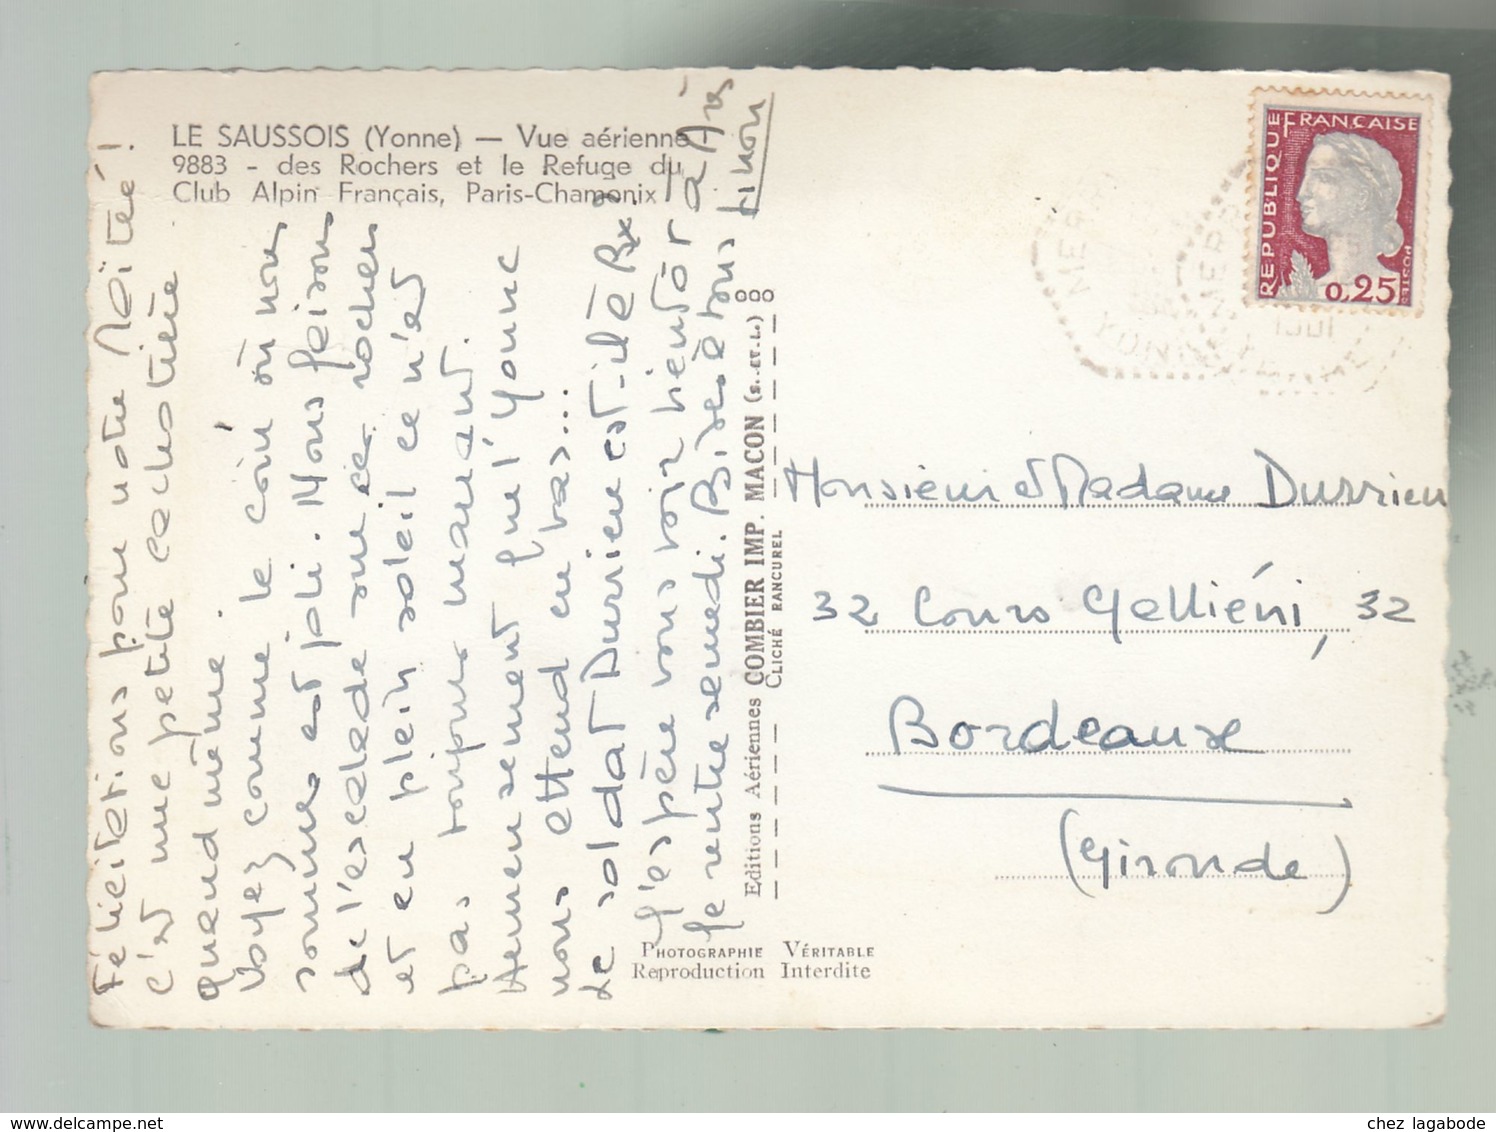 LE SAUSSOIS (Yonne) — Vue aérienne
9883 - des Rochers et le Refuge du
Club Alpin Français, Paris-Chamonix
Félicitations pour votre Maïtée !
c'est une petite
quand même.
Voyez comme le coin où nous
sommes est joli. Nous faisons
de l'escalade sur ce rocher
et en plein soleil ce n'est
pas toujours marrant.
Heureusement que l'Yonne
nous attend en bas...
Le soldat Durrieu est-il à Bx ?
J'espère vous voir bientôt à Arès
Je rentre samedi. Bises à tous
Editions Aériennes COMBIER IMP. MACON (S.-ET-L.)
CLICHÉ RANCUREL
PHOTOGRAPHIE VÉRITABLE
Reproduction Interdite
RÉPUBLIQUE FRANÇAISE
0,25
POSTES
YONNE
Monsieur et Madame Durrieu
32 Cours Galliéni, 32
Bordeaux
(Gironde)
chez lagabode